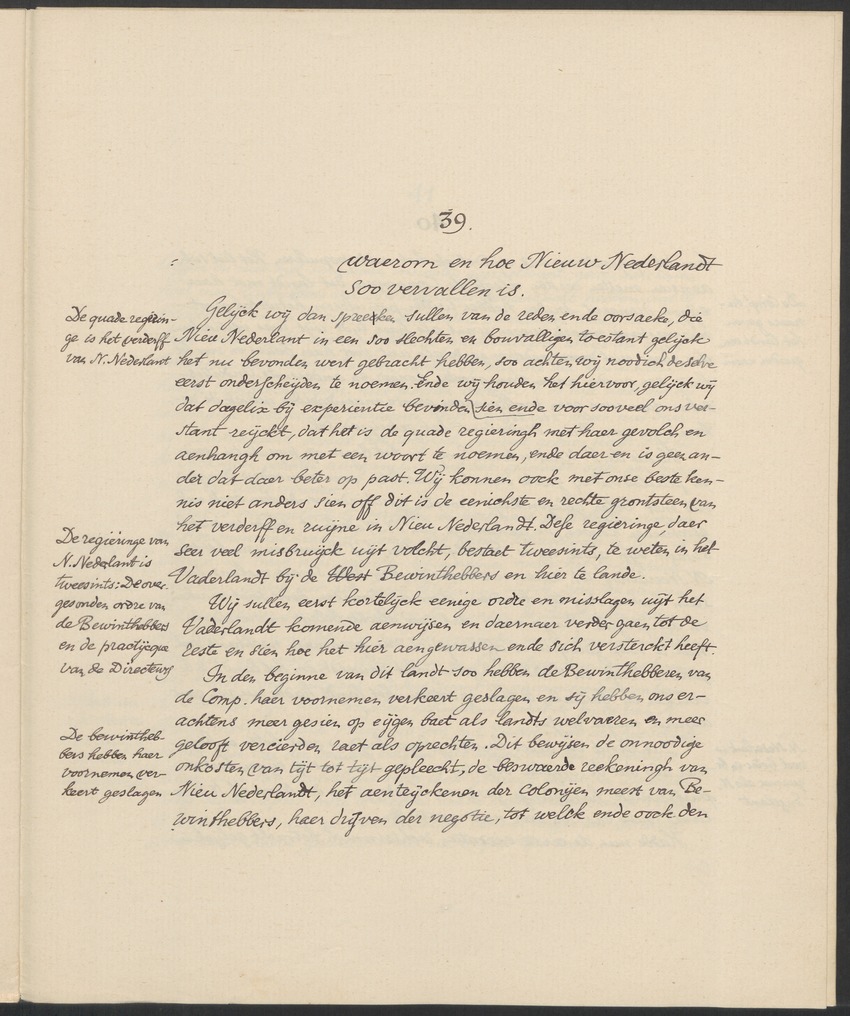 39.
waerom en hoe Nieuw Nederlandt
soo vervallen is.
De quade regierin-
ge is het verderff
van N. Nederlant
Gelijck wij dan spreeken sullen van de reden ende oorsaeke, die
Nieu Nederlant in een soo slechten en bouvalligen toestant gelijck
het nu bevonden wert gebracht hebben, soo achten wij noodich deselve
eerst onderscheijden te noemen. Ende wij houden het hiervoor, gelijck wij
dat dagelix bij experientie bevinden sien ende voor sooveel ons ver-
stant reijckt, dat het is de quade regieringh met haer gevolch en
aenhangh om met een woort te noemen, ende daer en is geen an-
der dat daer beter op past. Wij konnen oock met onse beste ken-
nis niet anders sien off dit is de eenichste en rechte grontsteen van
het verderff en ruijne in Nieu Nederlandt. Dese regieringe, daer
seer veel misbruijck uijt volcht, bestaet tweesints, te weten in het
Vaderlandt bij de West Bewinthebbers en hier te lande.
De regieringe van
N. Nederlant is
tweesints: De over
gesonden ordre van
de Bewinthebbers
en de practijcque
van de Directeurs
Wij sullen eerst kortelijck eenige ordre en misslagen uijt het
Vaderlandt komende aenwijsen en daernaer verder gaen tot de
reste en sien hoe het hier aengewassen ende sich versterckt heeft.
In den beginne van dit landt soo hebben de Bewinthebberen van
de Comp. haer voornemen verkeert geslagen en sij hebben ons er-
achtens meer gesien op eijgen baet als landts welvaeren en meer
gelooft vercierden raet als oprechten. Dit bewijsen de onnoodige
onkosten van tijt tot tijt gepleecht, de beswaerde reekeningh van
Nieu Nederlandt, het aenteijckenen der Colonijen meest van Be-
winthebbers, haer drijven der negotie, tot welck ende oock den
De bewintheb-
bers hebben haer
voornemen ver-
keert geslagen